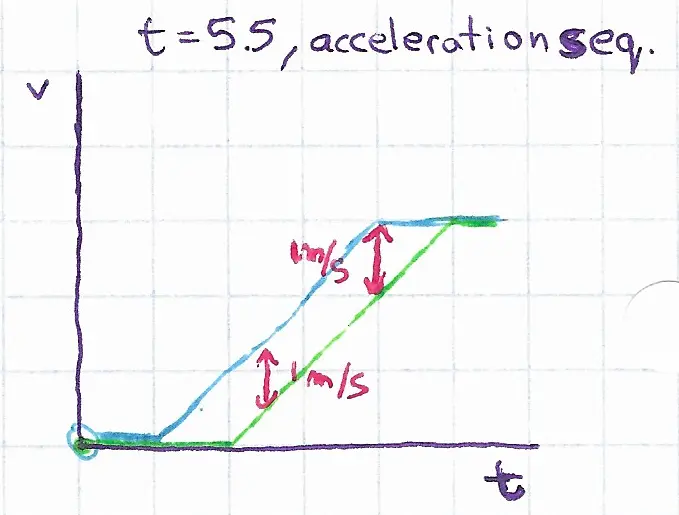 t=5.5, acceleration seq.
v
1m/s
1m/s
t